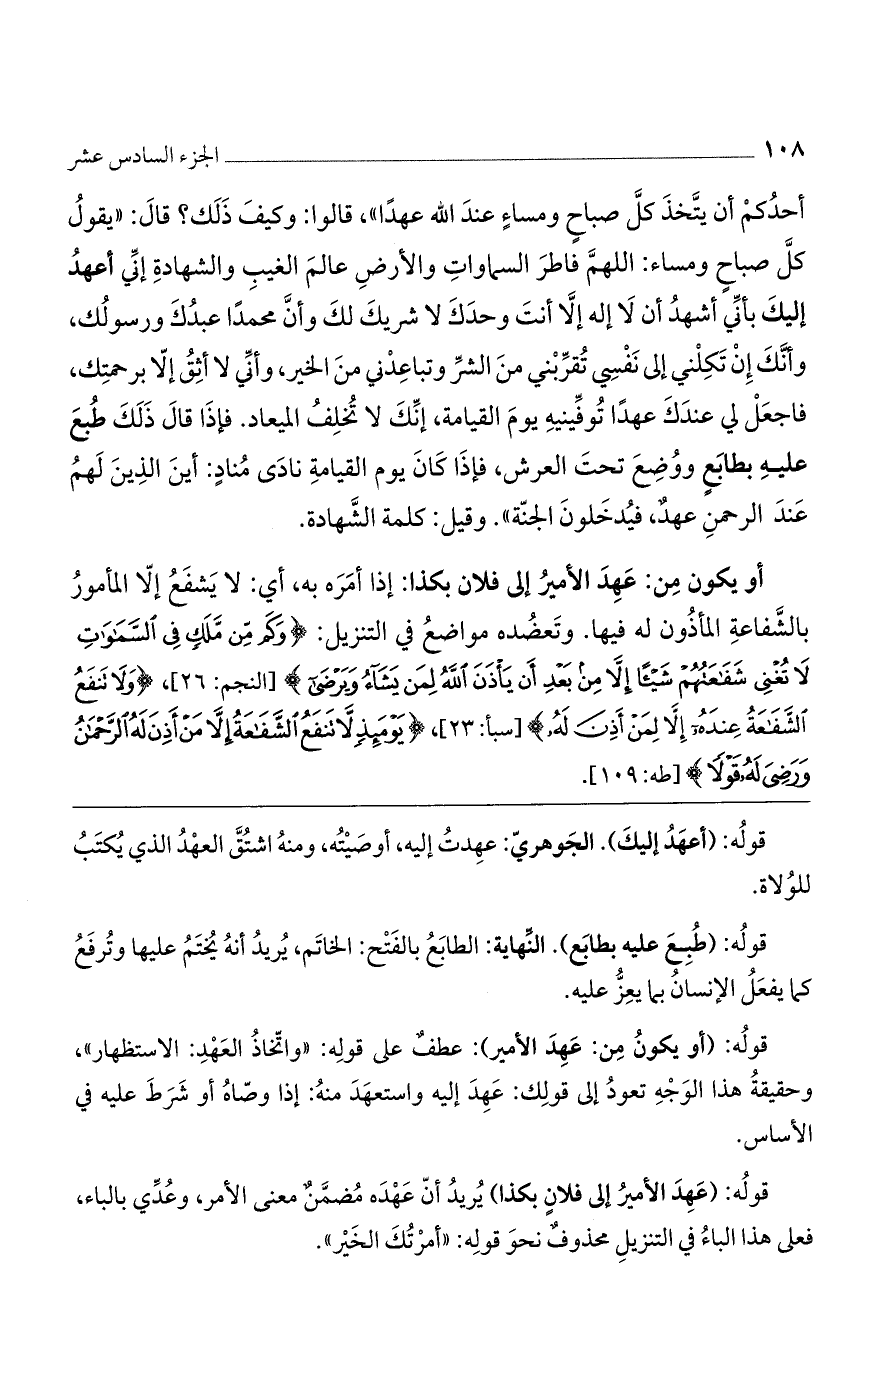 ١٠٨ ــــــــــــــــــــــــــــــــــــــــ الجزء السادس عشر
أحدُكمْ أن يتَّخذَ كلَّ صباحٍ ومساءٍ عندَ الله عهدًا»، قالوا: وكيفَ ذَلَك؟ قالَ: «يقولُ
كلَّ صباحٍ ومساء: اللهمَّ فاطرَ السماواتِ والأرضِ عالمَ الغيبِ والشهادةِ إنِّي أعهدُ
إليكَ بأنِّي أشهدُ أن لَا إله إلَّا أنتَ وحدَكَ لا شريكَ لكَ وأنَّ محمدًا عبدُكَ ورسولُك،
وأنَّكَ إنْ تَكِلْني إلى نَفْسِي تُقرِّبْني منَ الشرِّ وتباعِدْني منَ الخير، وأنِّي لا أثِقُ إلّا برحمتِك،
فاجعَلْ لي عندَكَ عهدًا تُوفِّينيهِ يومَ القيامة، إنِّكَ لا تُخلِفُ الميعاد. فإذَا قالَ ذَلَكَ طُبعَ
عليـهِ بطابَعٍ ووُضِعَ تحتَ العرش، فإذَا كَانَ يوم القيامةِ نادَى مُنادٍ: أينَ الذِينَ لَهمُ
عَندَ الرحمنِ عهدٌ، فيُدخَلونَ الجنّة». وقيل: كلمة الشَّهادة.
أو يكون مِن: عَهِدَ الأميرُ إلى فلان بكذا: إذا أمَرَه به، أي: لا يَشفَعُ إلّا المأمورُ
بالشَّفاعةِ المأذُون له فيها. وتَعضُده مواضعُ في التنزيل: ﴿وَكَم مِّن مَّلَكٍ فِى ٱلسَّمَٰوَٰتِ
لَا تُغْنِى شَفَٰعَتُهُمْ شَيْـًٔا إِلَّا مِنۢ بَعْدِ أَن يَأْذَنَ ٱللَّهُ لِمَن يَشَآءُ وَيَرْضَىٰٓ﴾ [النجم: ٢٦]، ﴿وَلَا تَنفَعُ
ٱلشَّفَٰعَةُ عِندَهُۥٓ إِلَّا لِمَنْ أَذِنَ لَهُۥ﴾ [سبأ: ٢٣]، ﴿يَوْمَئِذٍ لَّا تَنفَعُ ٱلشَّفَٰعَةُ إِلَّا مَنْ أَذِنَ لَهُ ٱلرَّحْمَٰنُ
وَرَضِىَ لَهُۥ قَوْلًا﴾ [طه: ١٠٩].
قولُه: (أعهَدُ إليكَ). الجَوهريّ: عهِدتُ إليه، أوصَيْتُه، ومنهُ اشتُقَّ العهْدُ الذي يُكتَبُ
للوُلاة.
قولُه: (طُبِعَ عليه بطابَع). النِّهاية: الطابَعُ بالفَتْح: الخاتَم، يُريدُ أنهُ يُختَمُ عليها وتُرفَعُ
كما يفعَلُ الإنسانُ بما يعِزُّ عليه.
قولُه: (أو يكونُ مِن: عَهِدَ الأمير): عطفٌ على قولِه: «واتّخاذُ العَهْدِ: الاستظهار»،
وحقيقةُ هذا الوَجْهِ تعودُ إلى قولِك: عَهِدَ إليه واستعهَدَ منهُ: إذا وصّاهُ أو شَرَطَ عليه في
الأساس.
قولُه: (عَهِدَ الأميرُ إلى فلانٍ بكذا) يُريدُ أنّ عَهْدَه مُضمَّنٌ معنى الأمر، وعُدِّي بالباء،
فعلى هذا الباءُ في التنزيلِ محذوفٌ نحوَ قولِه: «أمرْتُكَ الخَيْر».